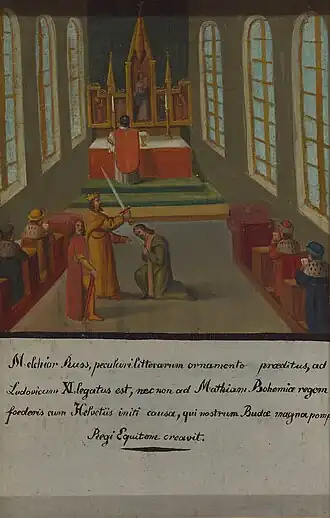 Melchior Russ, peculiari litterarum ornamento præditus, ad
Ludovicum XI. legatus est, nec non ad Mathiam Bohemiæ regem
foederis cum Helvetiis initi causa, qui nostrum Budæ magna pomp
Regi Equitem creavit.